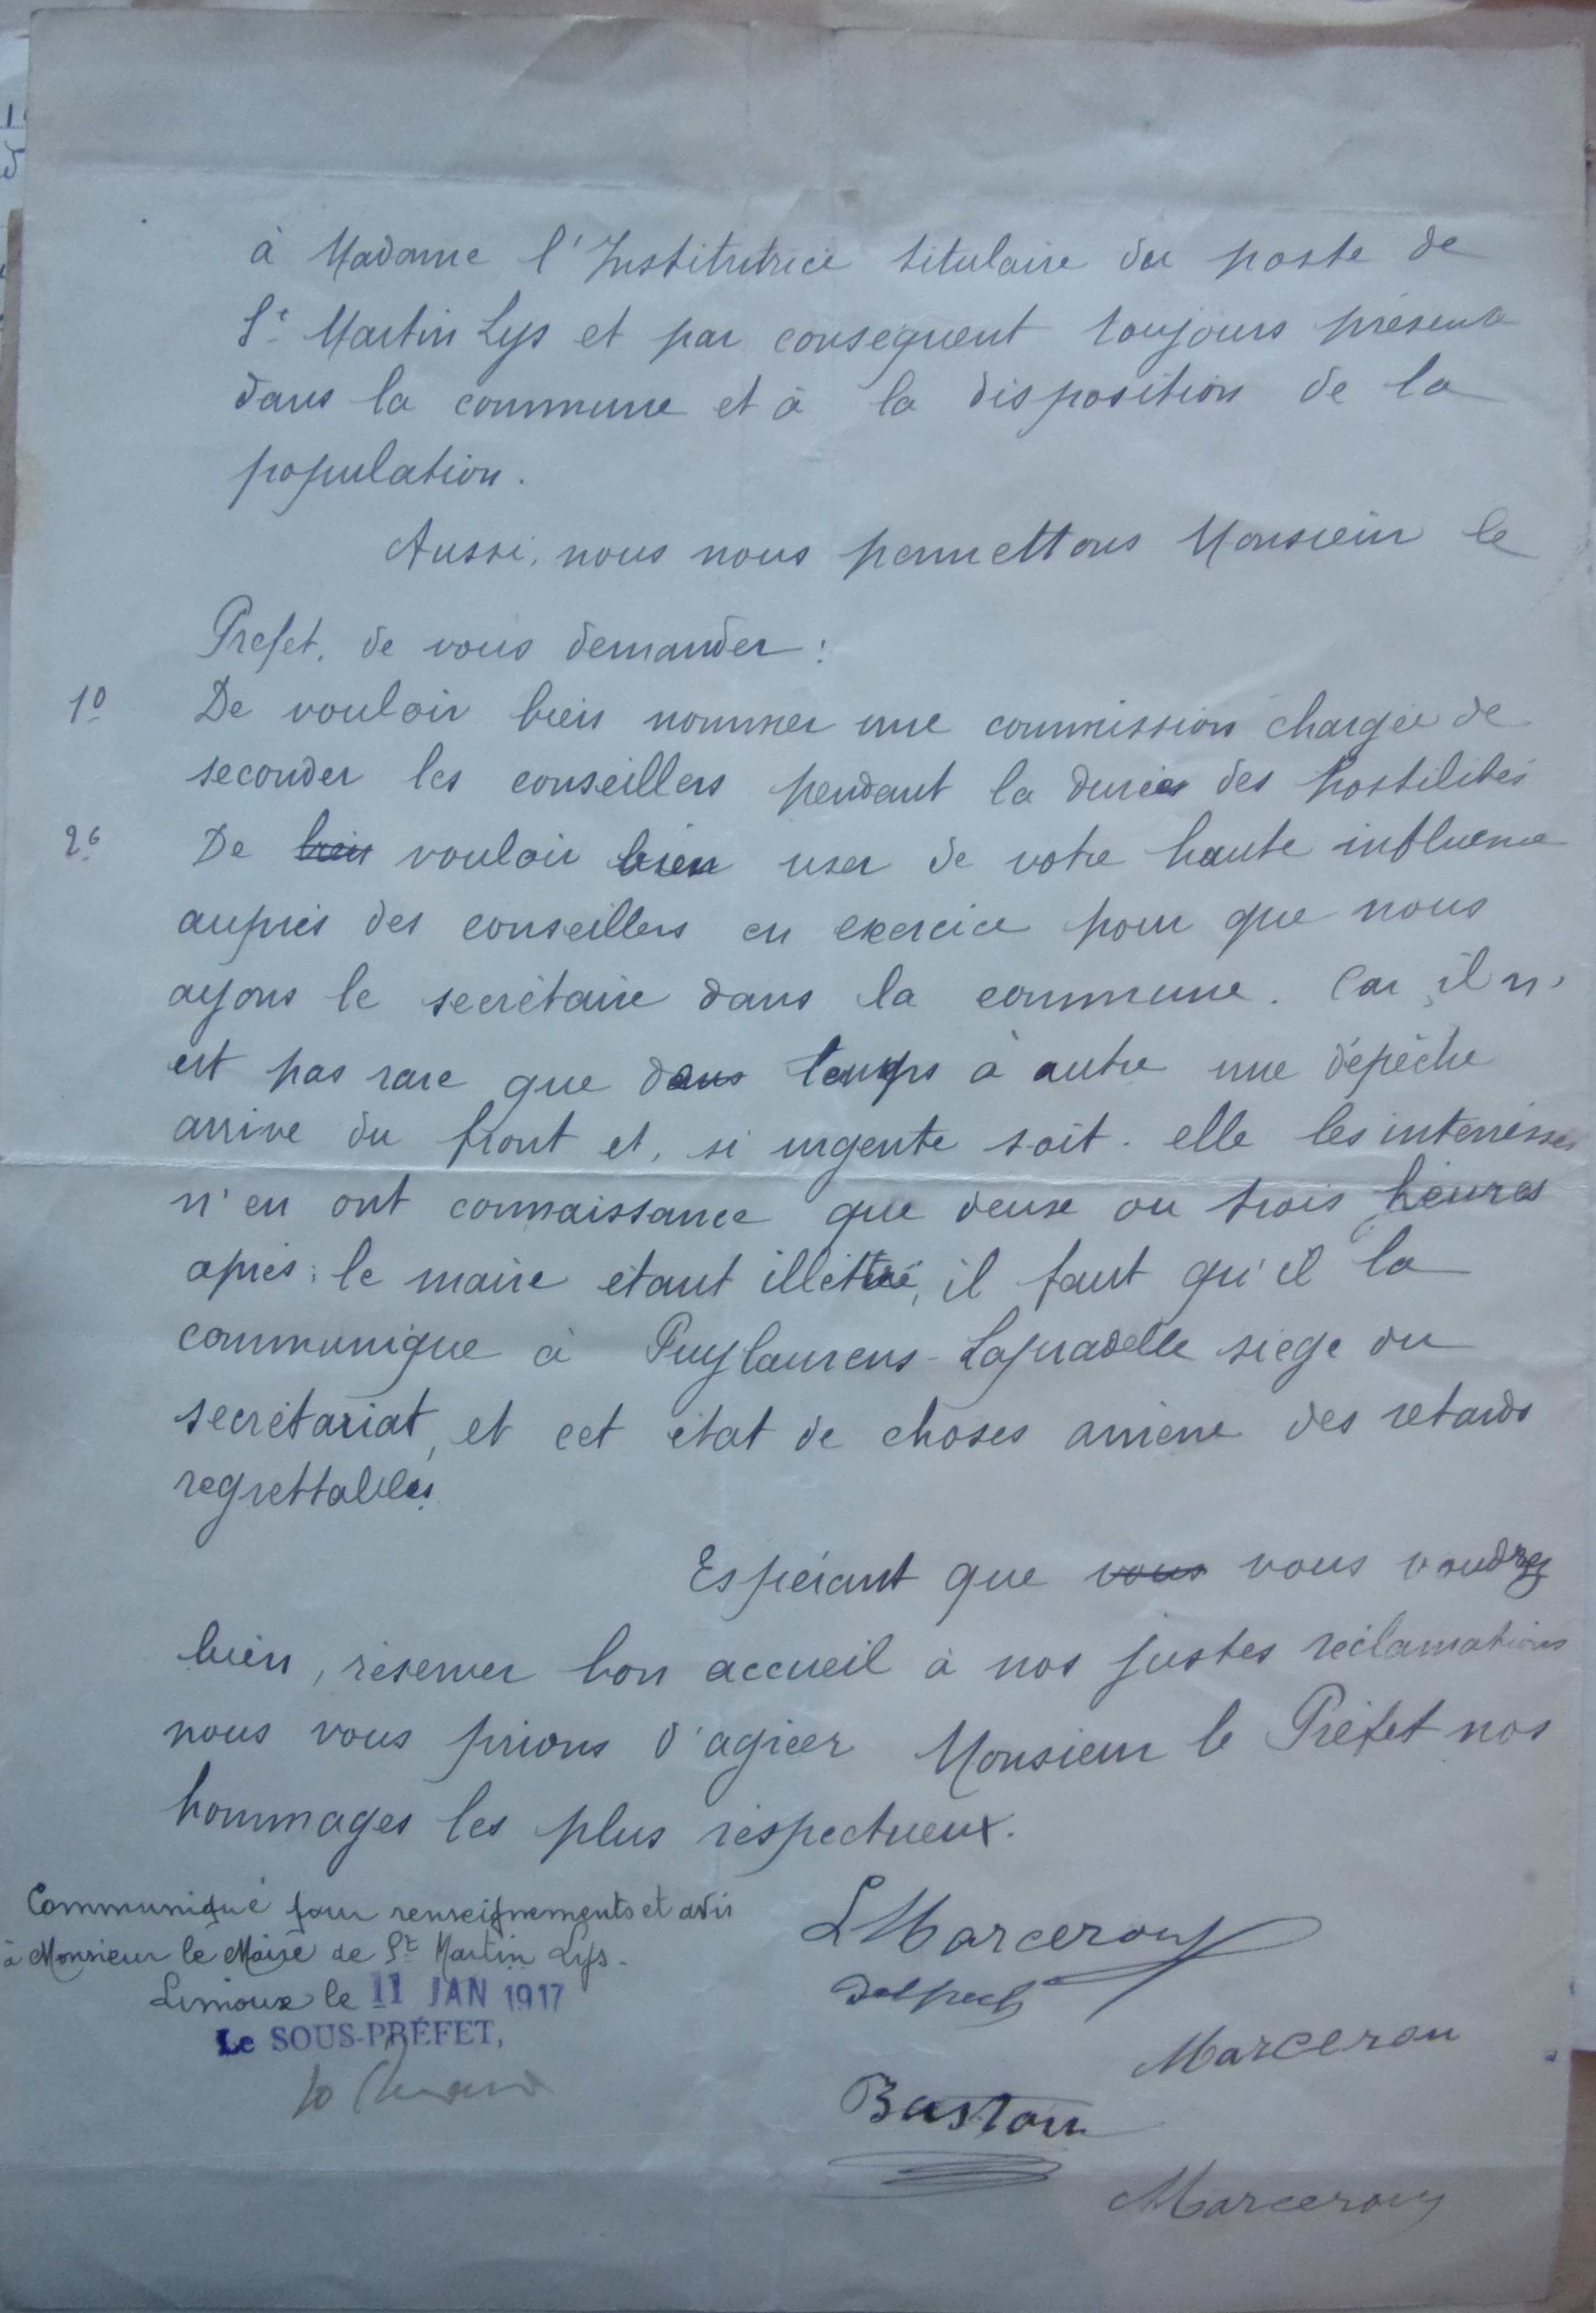 à Madame l'Institutrice titulaire du poste de
St Martin Lys et par consequent toujours présente
dans la commune et à la disposition de la
population.
Aussi, nous nous permettons Monsieur le
Prefet, de vous demander :
1º De vouloir bien nommer une commission chargée de
seconder les conseillers pendant la durée des hostilités
2º De bien vouloir bien user de votre haute influence
auprès des conseillers en exercice pour que nous
ayons le secrétaire dans la commune. Car il n'
est pas rare que dans temps à autre une dépêche
arrive du front et, si urgente soit-elle les interressés
n'en ont connaissance que deux ou trois heures
après ; le maire étant illettré, il faut qu'il la
communique à Puylaurens-Lapradelle siège du
secrétariat, et cet état de choses amène des retards
regrettables.
Espérant que vous vous voudrez
bien, réserver bon accueil à nos justes réclamations
nous vous prions d'agréer Monsieur le Préfet nos
hommages les plus respectueux.
Communiqué pour renseignements et avis
à Monsieur le Maire de St Martin Lys.
Limoux le 11 JAN 1917
Le SOUS-PRÉFET,
L Marcerou
Delpech
Marcerou
Bastou
Marcerou